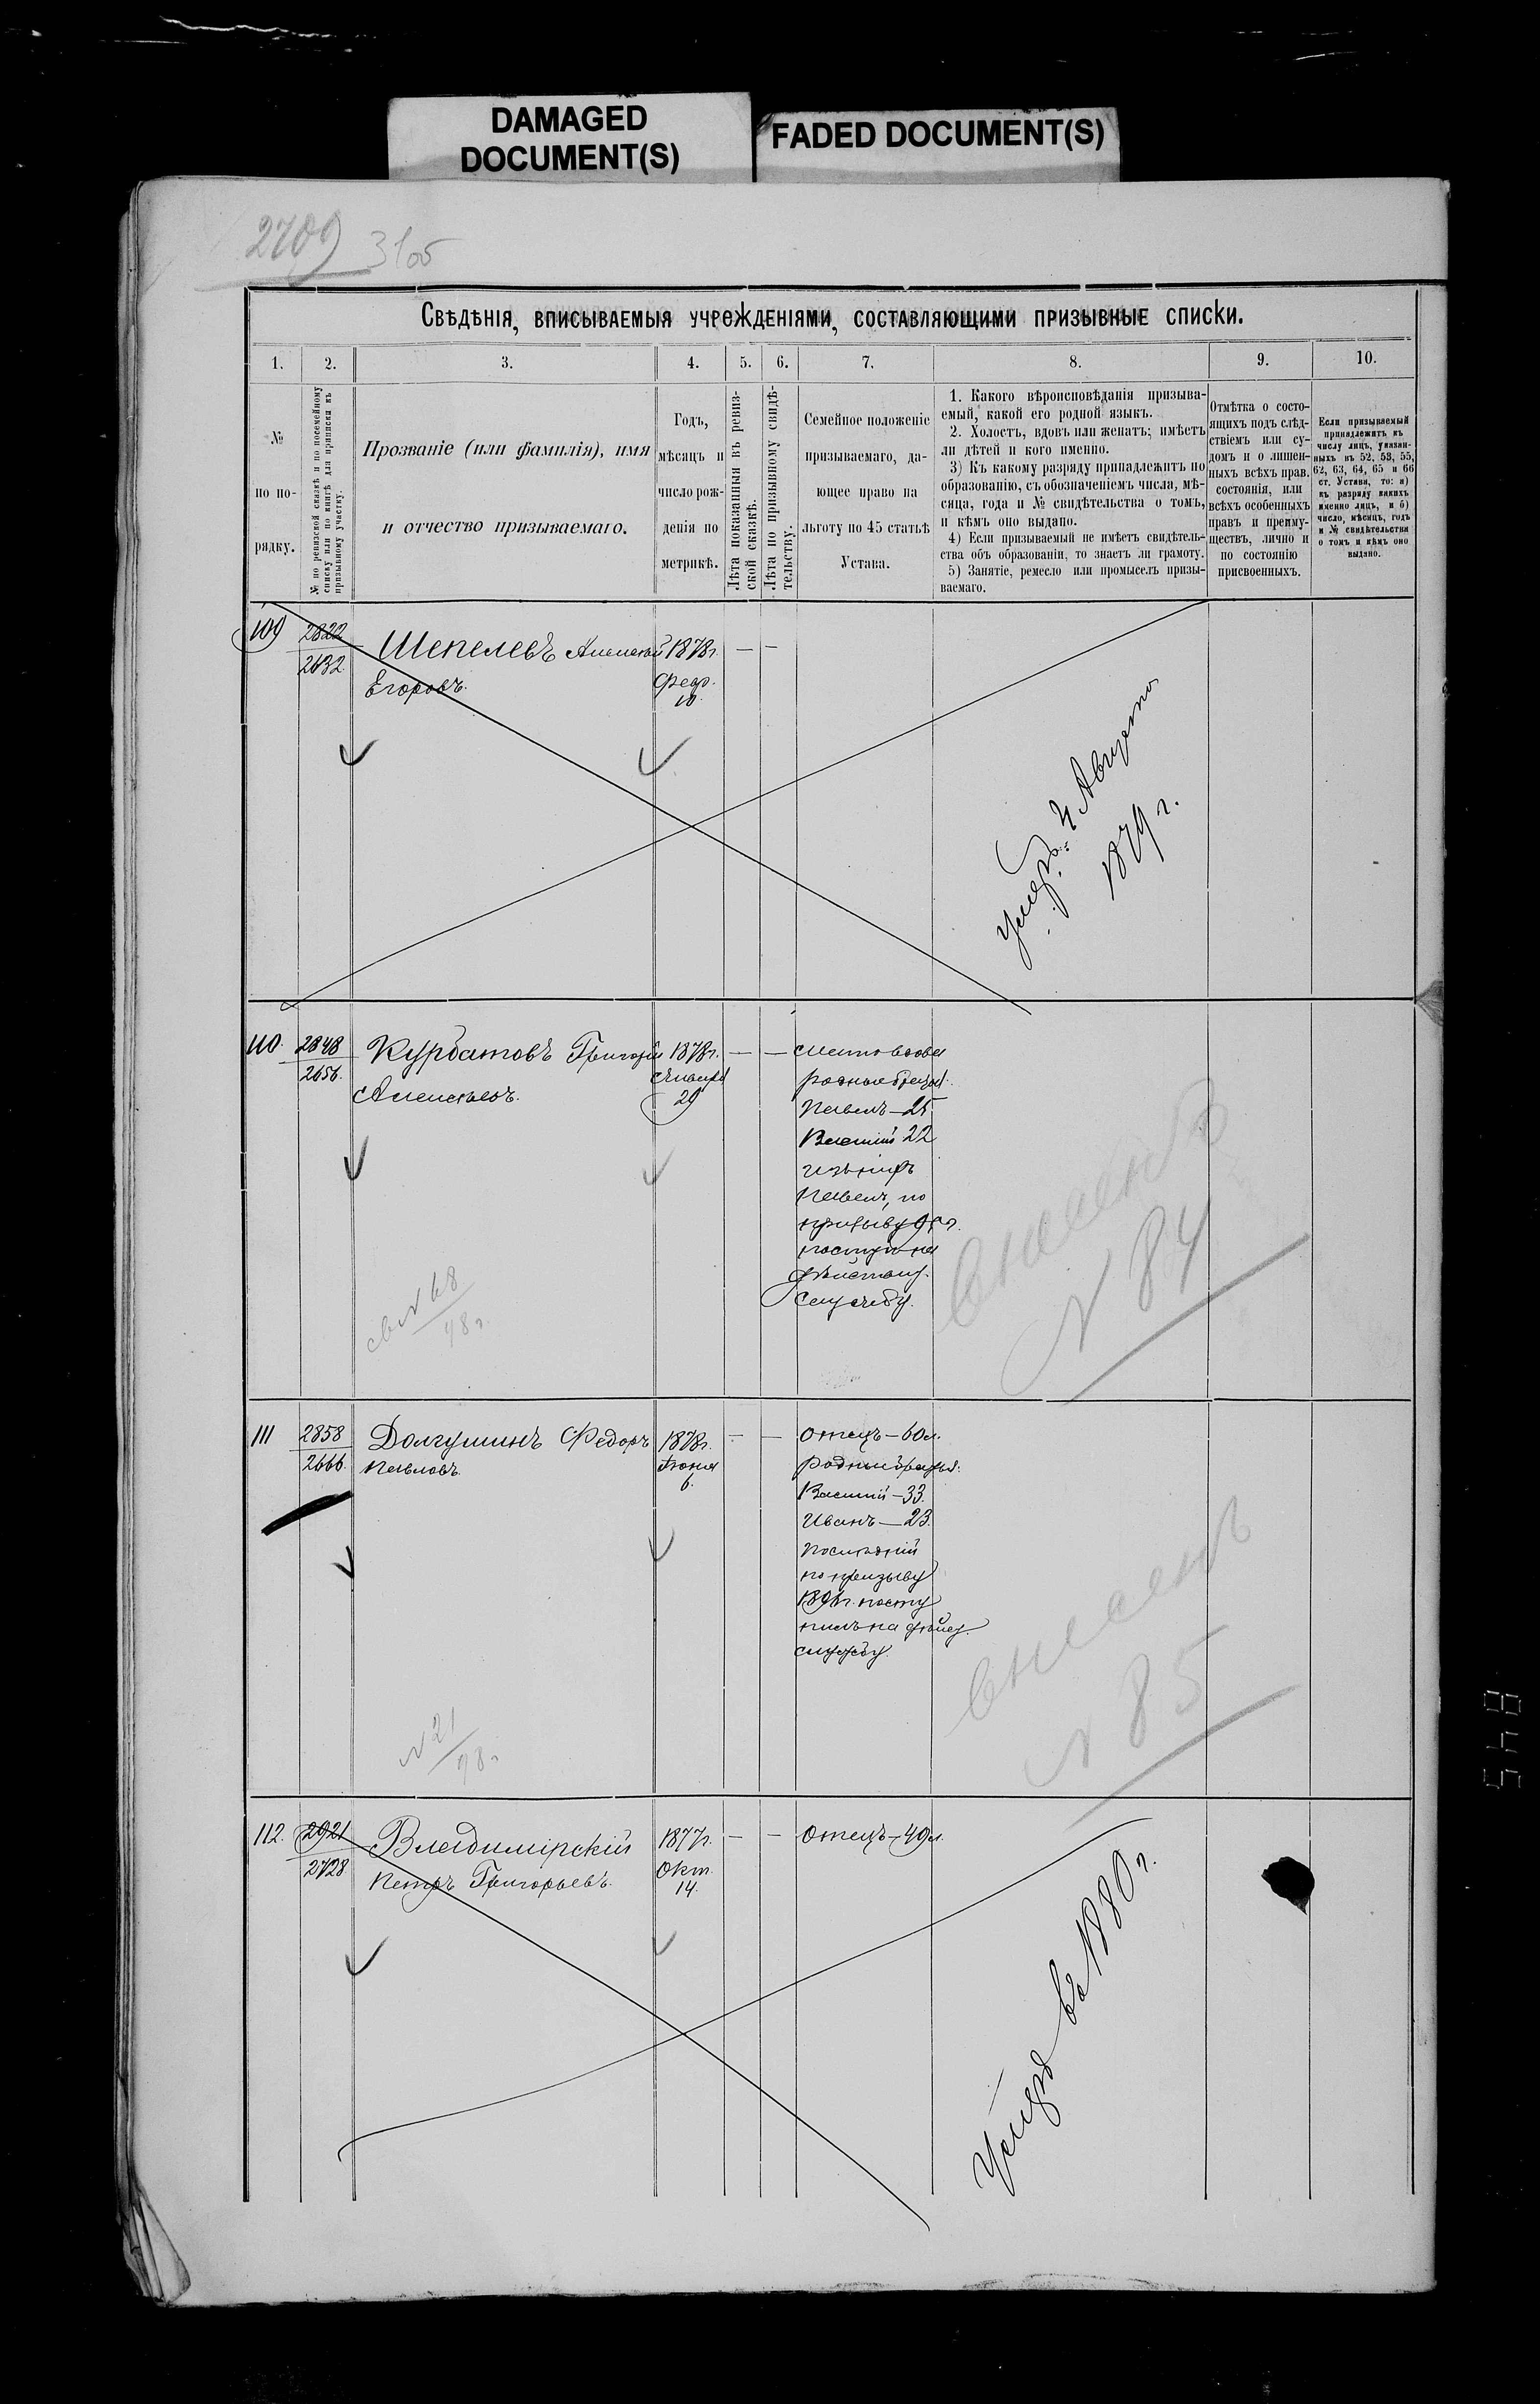 DAMAGED
DOCUMENT(S)
FADED DOCUMENT(S)
2709 3105
Свѣдѣнія, вписываемыя учрежденіями, составляющими призывные списки.
1. 2. 3. 4. 5. 6. 7. 8. 9. 10.
№
по по-
рядку.
№ по ревизской сказкѣ и по посемейному
списку или по книгѣ для приписки къ
призывному участку.
Прозваніе (или фамилія), имя
и отчество призываемаго.
Годъ,
мѣсяцъ и
число рож-
денія по
метрикѣ.
Лѣта показанныя въ ревиз-
ской сказкѣ.
Лѣта по призывному свидѣ-
тельству.
Семейное положеніе
призываемаго, да-
ющее право на
льготу по 45 статьѣ
Устава.
1. Какого вѣроисповѣданія призыва-
емый, какой его родной языкъ.
2. Холостъ, вдовъ или женатъ; имѣетъ
ли дѣтей и кого именно.
3) Къ какому разряду принадлежитъ по
образованію, съ обозначеніемъ числа, мѣ-
сяца, года и № свидѣтельства о томъ,
и кѣмъ оно выдано.
4) Если призываемый не имѣетъ свидѣтель-
ства объ образованіи, то знаетъ ли грамоту.
5) Занятіе, ремесло или промыселъ призы-
ваемаго.
Отмѣтка о состо-
ящихъ подъ слѣд-
ствіемъ или су-
домъ и о лишен-
ныхъ всѣхъ прав.
состоянія, или
всѣхъ особенныхъ
правъ и преиму-
ществъ, лично и
по состоянію
присвоенныхъ.
Если призываемый
принадлежитъ къ
числу лицъ, указан-
ныхъ въ 52, 53, 55,
62, 63, 64, 65 и 66
ст. Устава, то: а)
къ разряду какихъ
именно лицъ, и б)
число, мѣсяцъ, годъ
и № свидѣтельства
о томъ и кѣмъ оно
выдано.
109 2822 Шепелевъ Алексѣй 1878г. — —
2632 Егоровъ. Февр.
10.
Августа
1879 г.
110. 2848 Курбатовъ Григорій 1878г. — — мать вдова
2656. Алексѣевъ. Января родные братья
29 Павелъ — 25
Василій 22
изъ нихъ
Павелъ, по
призыву
на
дѣйствит.
службу.
№ 84
№ 68
98 г.
111 2858 Долгушинъ Федоръ 1878г. — — Отецъ — 60л.
2666. Павловъ. Іюня родные братья:
6. Василій — 33.
Иванъ — 23.
Послѣдній
по призыву
1896г. посту
пилъ на дѣйст.
службу.
внесенъ
№ 85
№ 21
98 г.
112. 2921 Владимірскій 1877г. — — Отецъ — 49л.
2728 Петръ Григорьевъ. Окт.
14.
Умеръ въ 1880 г.
845